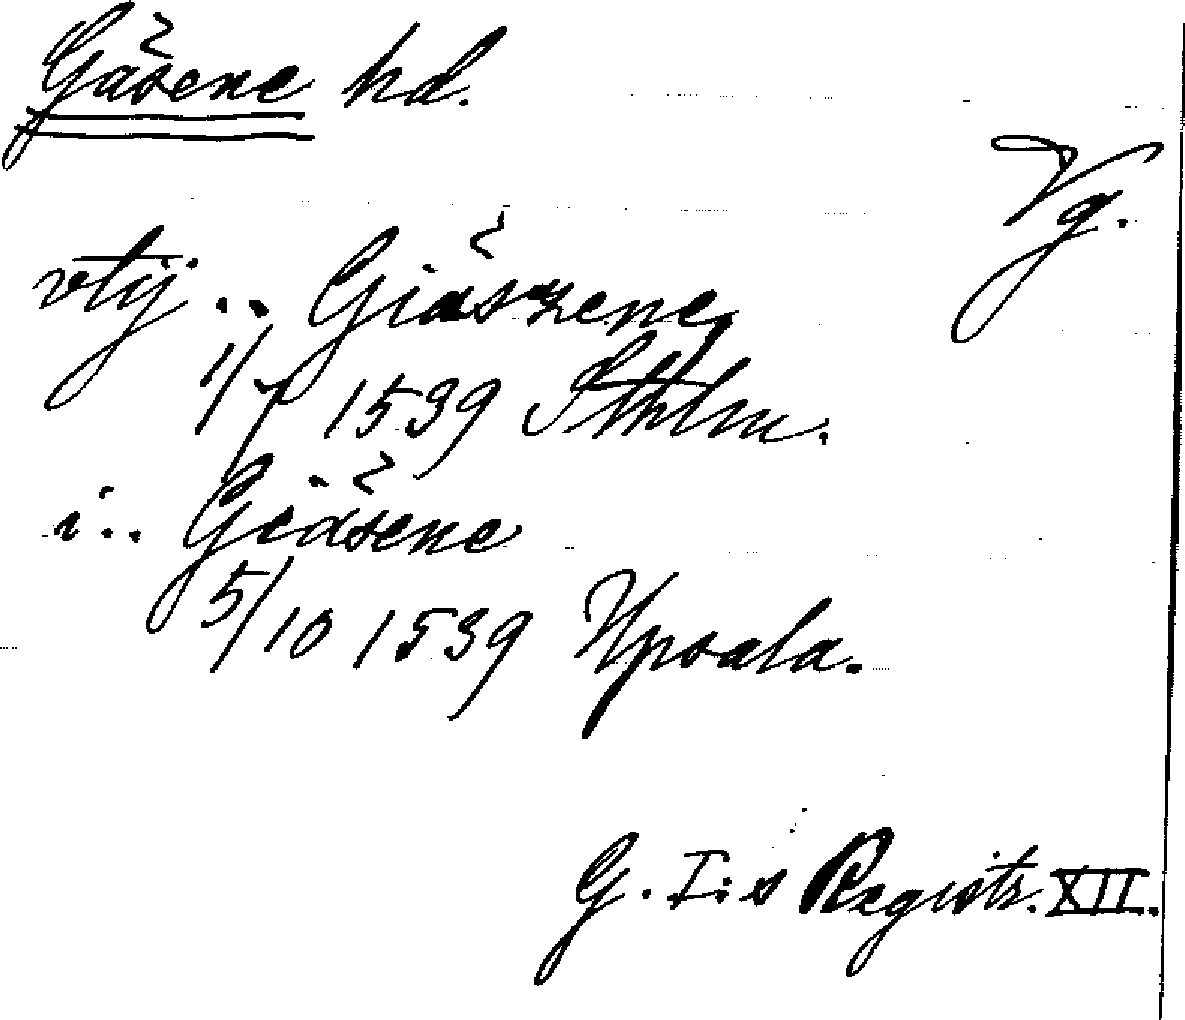 Gäsene hd.
Vg.
vtij .. Giäszene
1/7 1539 Sthlm.
i .. Giäsene
5/10 1539 Upsala.
G. I:s Registr. XII.